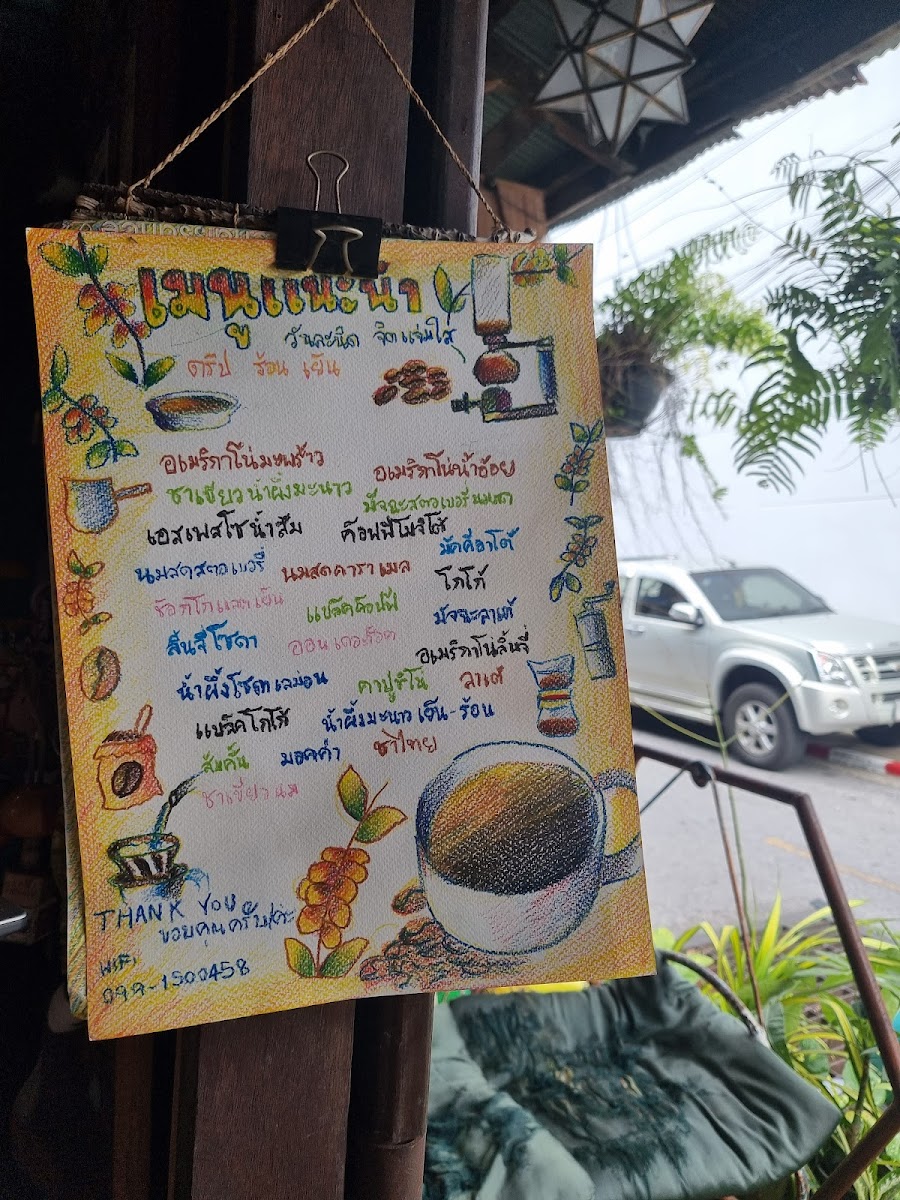 เมนูแนะนำ
วันละนิด จิตแจ่มใส
ดริป ร้อน เย็น
อเมริกาโน่มะพร้าว อเมริกาโน่น้ำอ้อย
ชาเขียวน้ำผึ้งมะนาว มัจฉะสตอเบอรี่นมสด
เอสเพสโซ่น้ำส้ม ค๊อฟฟี่โมจิโต้
นมสดสตอเบอรี่ นมสดคาราเมล มัคคีอาโต้
ช๊อกโกแลตเย็น แบล็คค๊อฟฟี่ โกโก้
ลิ้นจี่โซดา ออนเดอะร็อค มัจฉะลาเต้
อเมริกาโน่ลิ้นจี่
น้ำผึ้งโซดาเลม่อน คาปูชิโน่ ลาเต้
แบล็คโกโก้ น้ำผึ้งมะนาวเย็น-ร้อน
ส้มคั้น มอคค่า ชาไทย
ชาเขียวนม
THANK YOU
ขอบคุณครับ/ค่ะ
WIFI
099-1500458